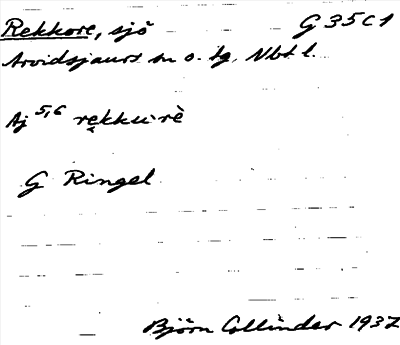 Rekkore, sjö G35C1
Arvidsjaurs sn o. tg, Nbt l.
Aj 5,6 rekku·rè
G Ringel
Björn Collinder 1937